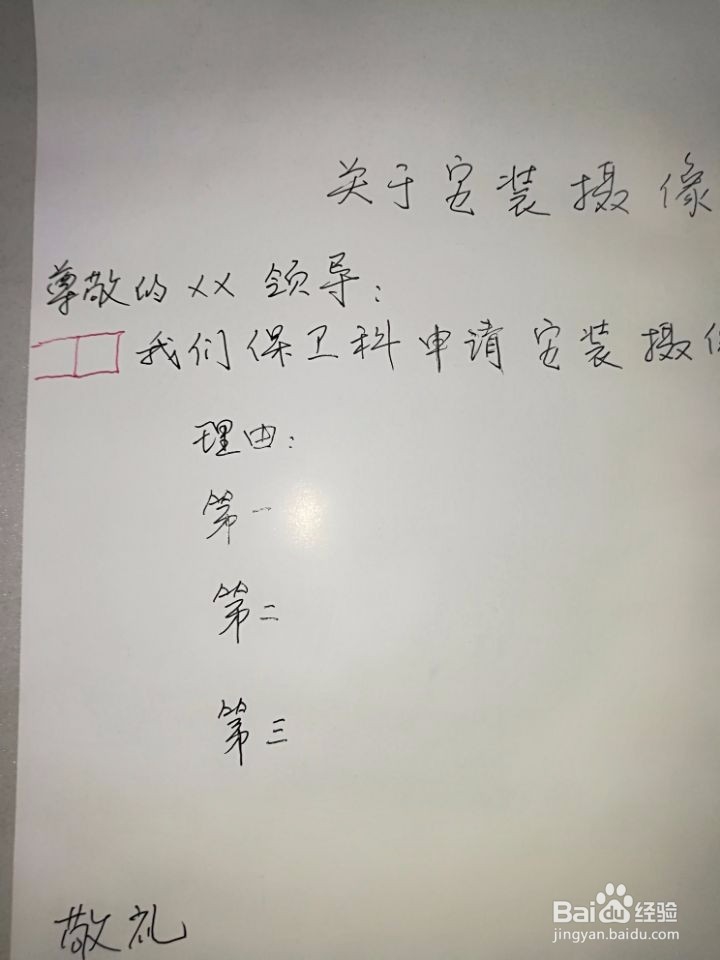 关于安装摄像
尊敬的XX领导：
我们保卫科申请安装摄
理由：
第一
第二
第三
敬礼
Baidu经验
jingyan.baidu.com